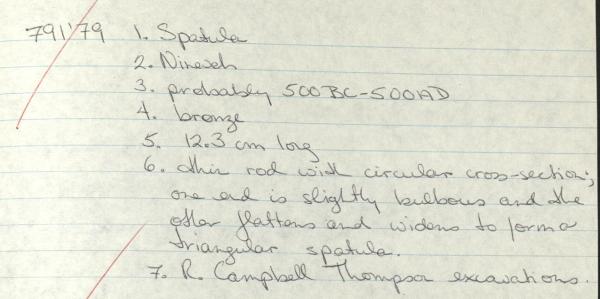 791'79 1. Spatula
2. Nineveh
3. probably 500BC-500AD
4. bronze
5. 12.3 cm long
6. thin rod with circular cross-section;
one end is slightly bulbous and the
other flattens and widens to form a
triangular spatula.
7. R. Campbell Thompson excavations.